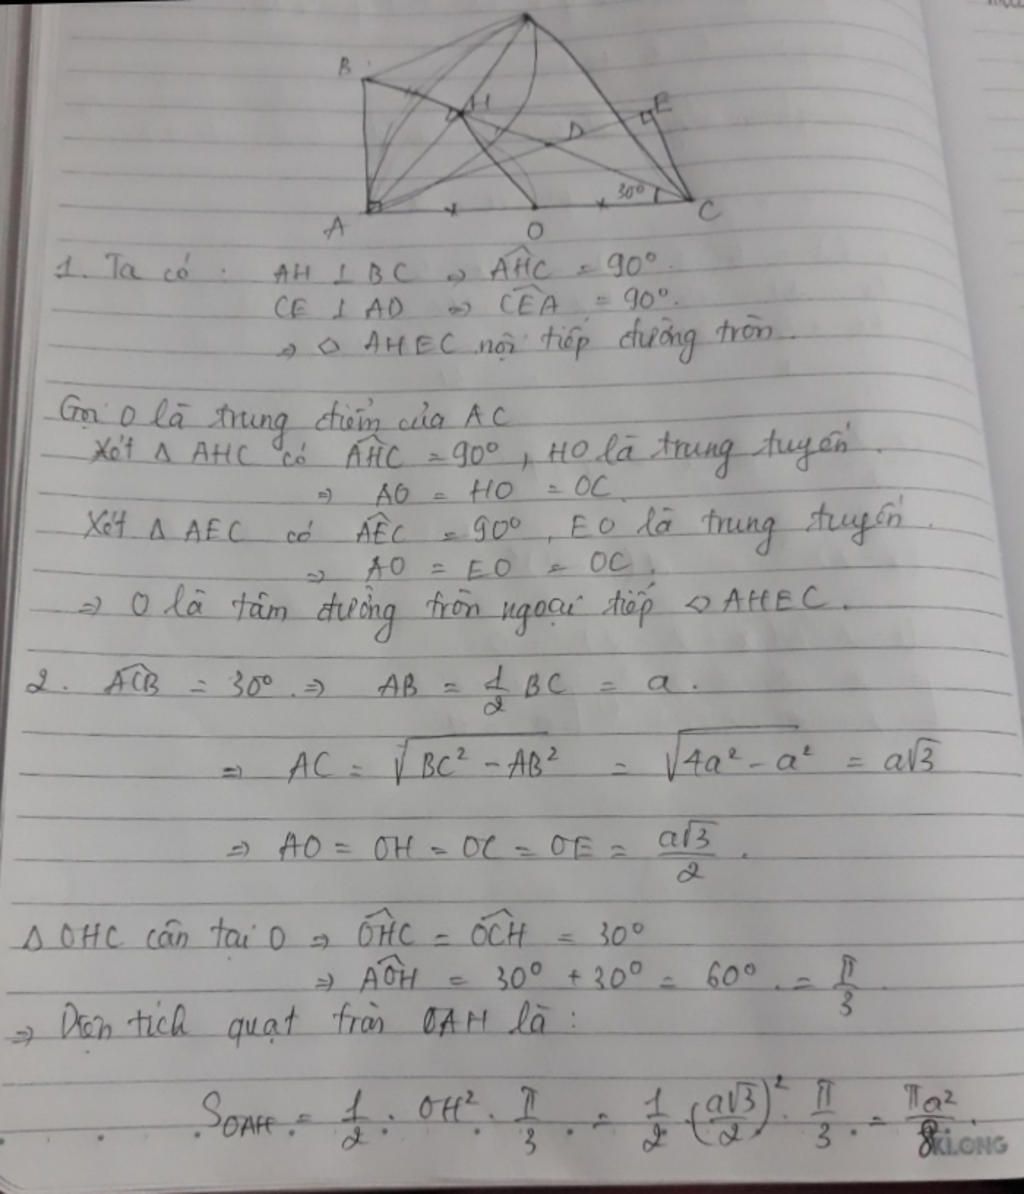 B
H
E
D
30°
A
O
C
1. Ta có : AH ⊥ BC ⇒ \widehat{AHC} = 90°.
CE ⊥ AD ⇒ \widehat{CEA} = 90°.
⇒ ◇ AHEC nội tiếp đường tròn.
Gọi O là trung điểm của AC
Xét Δ AHC có \widehat{AHC} = 90°, HO là trung tuyến.
⇒ AO = HO = OC.
Xét Δ AEC có \widehat{AEC} = 90°, EO là trung tuyến.
⇒ AO = EO = OC.
⇒ O là tâm đường tròn ngoại tiếp ◇ AHEC.
2. \widehat{ACB} = 30°. ⇒ AB = \frac{1}{2} BC = a.
⇒ AC = \sqrt{BC² - AB²} = \sqrt{4a² - a²} = a√3
⇒ AO = OH = OC = OE = \frac{a√3}{2}.
Δ OHC cân tại O ⇒ \widehat{OHC} = \widehat{OCH} = 30°
⇒ \widehat{AOH} = 30° + 30° = 60°. = \frac{π}{3}.
⇒ Diện tích quạt tròn OAH là :
S_{OAH} = \frac{1}{2} . OH² . \frac{π}{3} . = \frac{1}{2} . (\frac{a√3}{2})² . \frac{π}{3} . = \frac{πa²}{8}.
KLONG